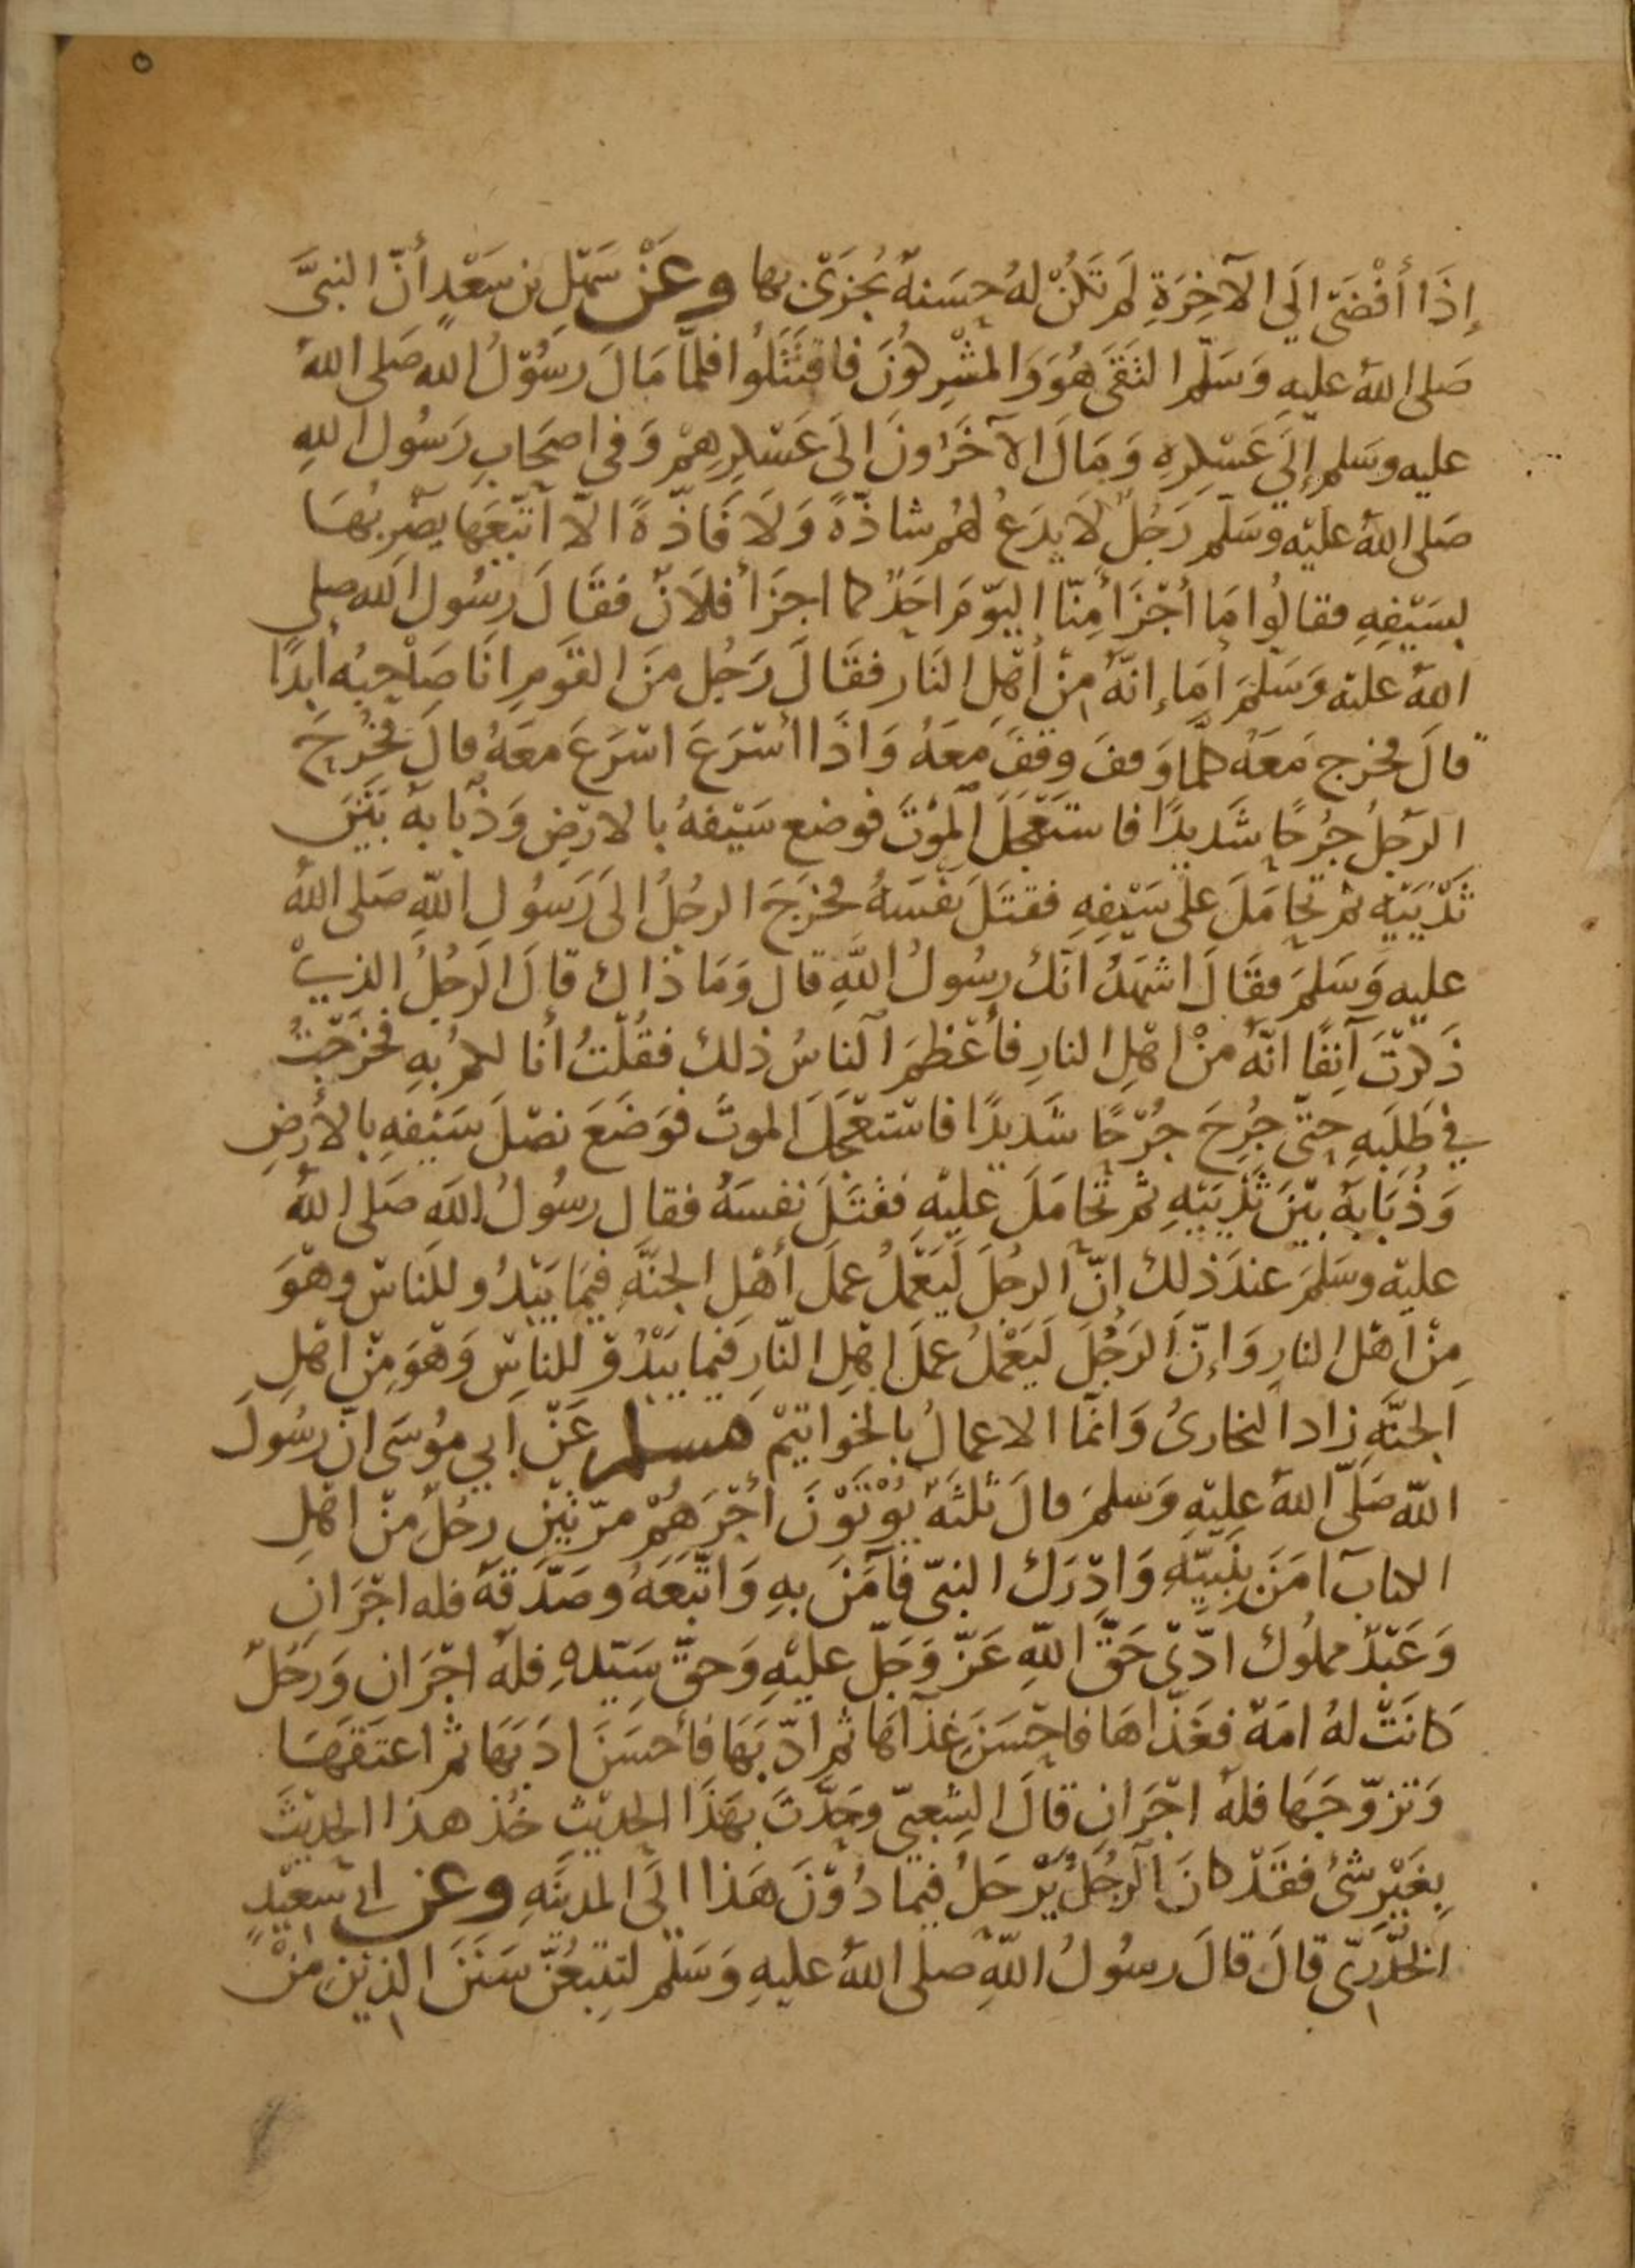 ٥
إِذَا أَفْضَى إلَي الآخِرَةِ لَم تَكُنْ لهُ حسَنةٌ يُجزَى بها وعَنْ سَهْلِ بن سَعْدٍ أنّ النبيَّ
صَلى اللهُ عليهِ وَسَلّم التَقَى هُوَ وَالمشْرِكُونَ فاقتَتَلُوا فلمّا مَالَ رَسُوْلُ اللهِ صَلى اللهُ
عليه وسَلم إلَي عَسْكرِهِ وَمَالَ الآخَرُونَ الَى عَسْكرِهِمْ وَفى اصحَابِ رَسُول اللهِ
صَلى اللهُ عَليْه وسَلّم رَجُلٌ لَا يدَعُ لهُم شاذّةً وَلَا فَاذّةً الّا اتّبَعَها يضْرِبُهَا
بسَيْفِهِ فقالُوا مَا أجْزَأَ مِنّا اليَوْمَ احَدٌ كما اجزَأَ فلَانٌ فقَالَ رسُول الله صلى
اللهُ عليْه وَسَلّمَ أمَا إنّهُ مِنْ أهْلِ النَار فقَالَ رَجُل مَنَ القوَمِ انَا صَاحِبُه أبَدًا
قالَ فخرج مَعَهُ كلّما وَقفَ وقفَ مَعَهُ وَاذَا أسْرَعَ اسْرَعَ معَهُ قالَ فجُرحَ
الرّجلُ جُرحًا شَديدًا فاستَعْجَلَ المَوْتَ فوضع سَيْفهُ بالارْضِ وَذُبَابهُ بَيْنَ
ثَدْيَيْهِ ثم تحَامَلَ عَلى سَيْفِهِ فقتَلَ نفْسَهُ فخرَجَ الرجُلُ الىَ رَسُول اللّهِ صَلى اللهُ
عليهِ وَسَلمَ فقَالَ اشهَدُ انّكَ رسُولُ اللّهِ قال وَمَا ذَاك قالَ الرَجُلُ الذِي
ذَكرْتَ آنِفًا انّهُ مِنْ اهْلِ النارِ فأَعْظَمَ الناسُ ذلك فقُلْتُ أنا لكم بهِ فخرَجْتُ
في طَلَبِهِ حتّى جُرِحَ جُرْحًا شَديدًا فاسْتَعْجَلَ الموتَ فوَضَعَ نصْلَ سَيْفهِ بالأرْضِ
وَذُبَابهُ بيْنَ ثَدْيَيْهِ ثم تحَامَلَ عَليْهِ فقتَلَ نفسَهُ فقال رسُولُ اللهِ صَلى اللهُ
عليْه وسَلمَ عندَ ذلِك انّ الرجُلَ لَيَعْملُ عملَ أهْلِ الجنّةِ فيمَا يَبْدُو للنَاسِ وهْوَ
مِنْ اهْل النارِ وَإنّ الرَجُلَ لَيَعْملُ عملَ اهْلِ النّارِ فيما يَبْدُوْ للناسِ وَهْوَ مِنْ اهْلِ
الجنّةِ زاد البخارىُ وَانمَّا الاعمالُ بالخوَاتيْم مسلم عَنْ ابي موُسَى انّ رسُولَ
اللّه صَلّى اللهُ عليْهِ وَسَلمَ قالَ ثلثةٌ يُؤْتَوْنَ أجْرَهُمْ مرّتيْن رجُلٌ مِنْ اهْلِ
الكتابِ آمَنَ بنَبِيّهِ وَادْرَكَ النبيّ فآمَنَ بهِ وَاتّبَعَهُ وصَدّقهُ فله اجْرَانِ
وَعَبْدٌ مملوُك ادّىْ حَقَّ اللّهِ عَزّ وَجَلّ عليْهِ وَحقّ سَيّدهِ فلهُ اجْرَان وَرَجُلٌ
كانَتْ لهُ امَةٌ فغَذّاهَا فاحْسَنَ غذَآءَهَا ثم ادّبَهَا فأحسَنَ ادَبَهَا ثم اعتَقهَا
وَتزوّجَهَا فلهُ اجْرَان قالَ الشعبيّ وحَدّثَ بهَذَا الحديْث خُذ هذا الحديْثَ
بِغيْر شئُ فقَدْ كانَ الرجُلُ يَرْحَلُ فيمَا دُوْنَ هَذا الَى المدينَةِ وعن ابي سعيْدٍ
الخُدْرِىّ قالَ قالَ رسوُلُ اللّهِ صلى اللهُ عليهِ وَسَلّم لتتبِعُنّ سَنَنَ الذِيْنَ مِنْ